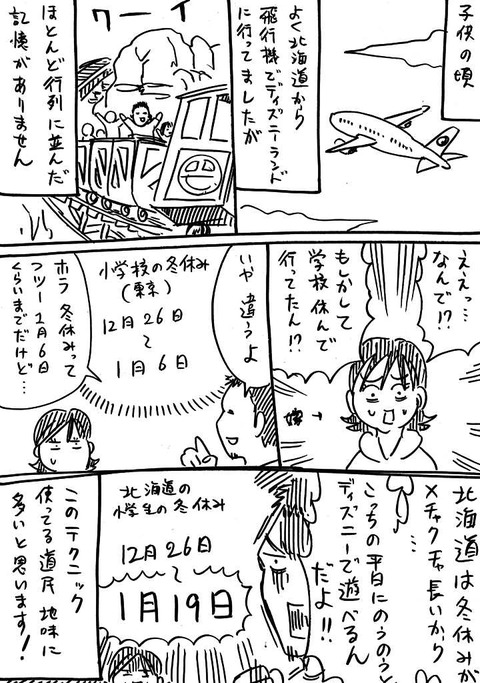 子供の頃
よく北海道から
飛行機でディズニーランド
に行ってましたが
ワーイ
ほとんど行列に並んだ
記憶がありません
ええっ…
なんで!?
もしかして
学校休んで
行ってたん!?
嫁→
いや 違うよ
小学校の冬休み
(東京)
12月26日
～
1月6日
ホラ 冬休みって
フツー1月6日
くらいまでだけど…
北海道は冬休みが
メチャクチャ長いから
…
こっちの平日にのうのうと
ディズニーで遊べるん
だよ!!
北海道の
小学生の冬休み
12月26日
～
1月19日
このテクニック
使ってる道民 地味に
多いと思います!